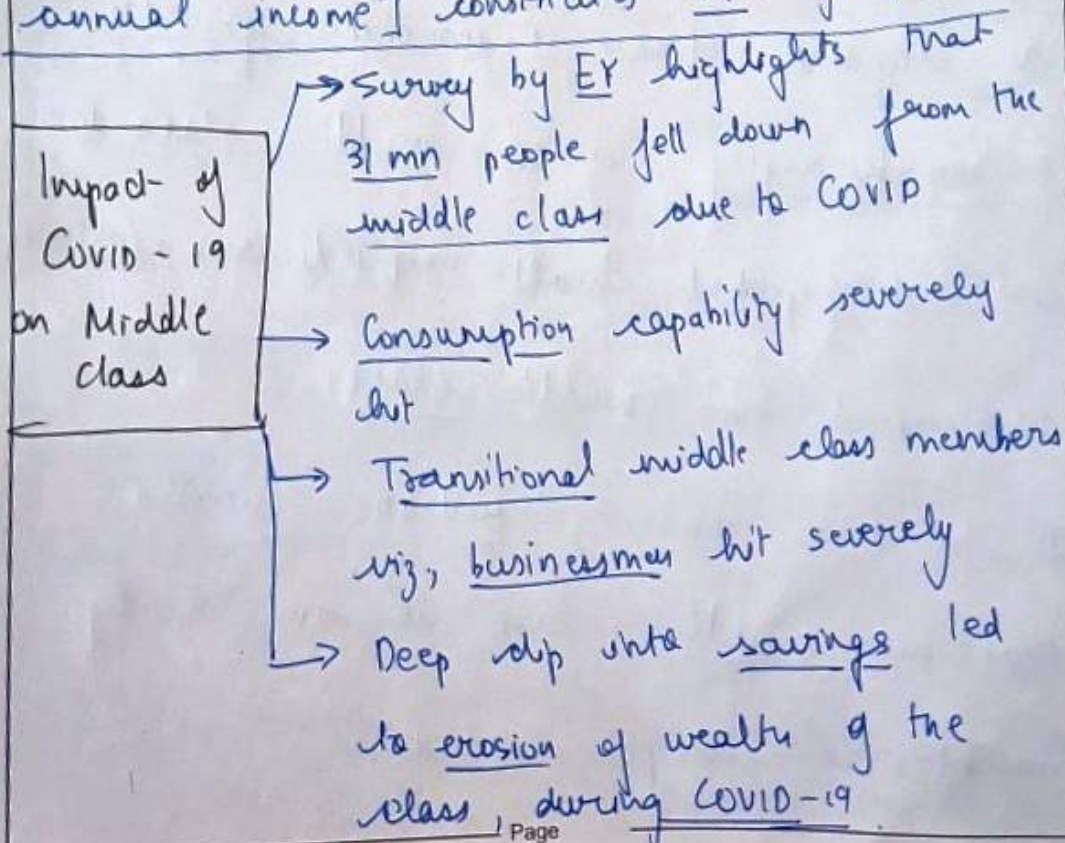 annual income]
Impact of
Covid-19
on Middle
class
→ Survey by EY highlights that
31 mn people fell down from the
middle class due to COVID
→ Consumption capability severely
hit
→ Transitional middle class members
viz, businessmen hit severely
→ Deep dip into savings led
to erosion of wealth of the
class, during COVID-19
Page